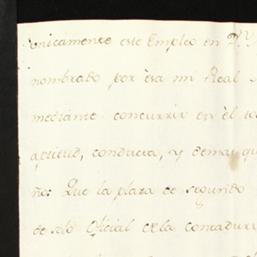 unicamente este Empleo en D.
nombrado por esa mi Real
mediante concurrir en él
aptitud, conducta, y demas
ño: Que la plaza de segundo
de solo Oficial de la contadur